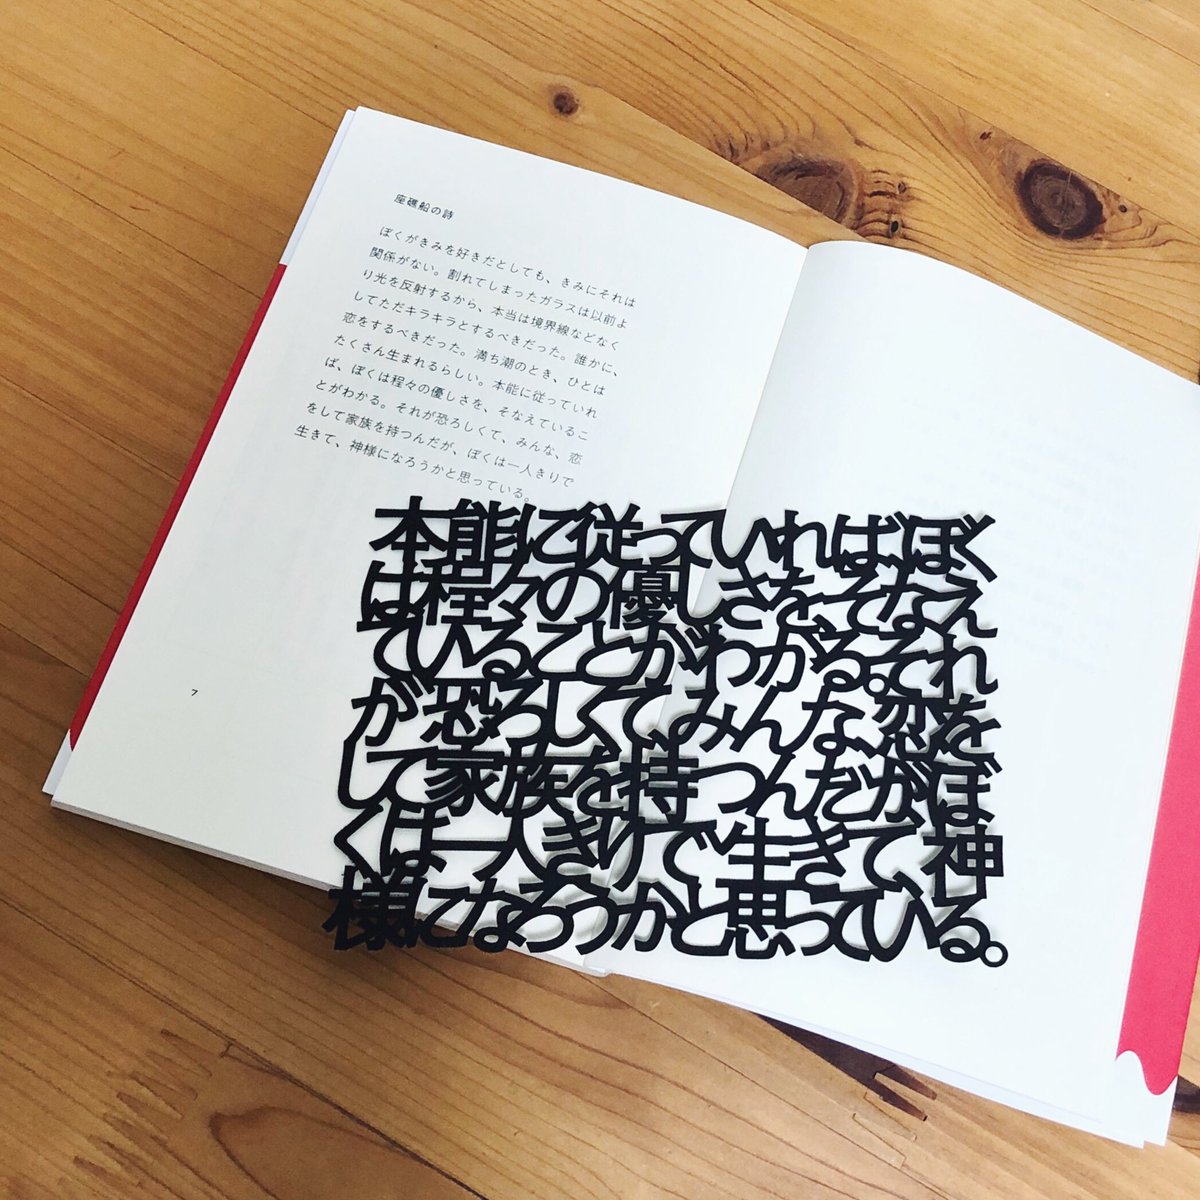 座礁船の詩
ぼくがきみを好きだとしても、きみにそれは
関係がない。割れてしまったガラスは以前よ
り光を反射するから、本当は境界線などなく
してただキラキラとするべきだった。誰かに、
恋をするべきだった。満ち潮のとき、ひとは
たくさん生まれるらしい。本能に従っていれ
ば、ぼくは程々の優しさを、そなえているこ
とがわかる。それが恐ろしくて、みんな、恋
をして家族を持つんだが、ぼくは一人きりで
生きて、神様になろうかと思っている。
7
本能に従っていればぼく
は程々の優しさをそなえ
ていることがわかる。それ
が恐ろしくてみんな恋を
して家族を持つんだがぼ
くは一人きりで生きて神
様になろうかと思っている。